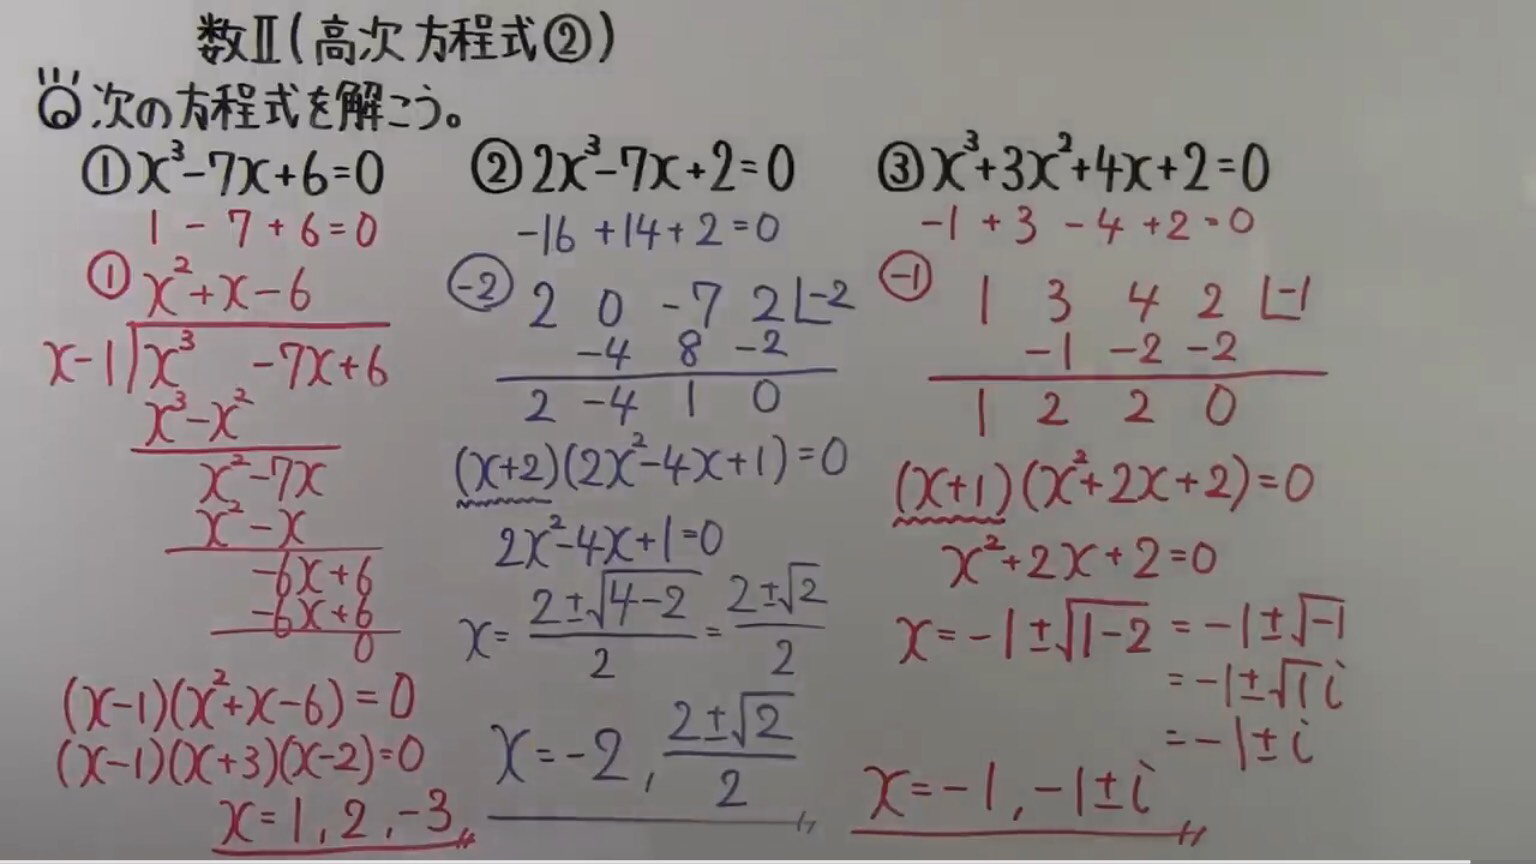 数Ⅱ(高次方程式②)
Q次の方程式を解こう。
①x³-7x+6=0
1-7+6=0
①
x²+x-6
x-1)x³ -7x+6
x³-x²
x²-7x
x²-x
-6x+6
-6x+6
0
(x-1)(x²+x-6)=0
(x-1)(x+3)(x-2)=0
x=1,2,-3
②2x³-7x+2=0
-16+14+2=0
-2 2 0 -7 2 -2
-4 8 -2
2 -4 1 0
(x+2)(2x²-4x+1)=0
2x²-4x+1=0
x=(2±√(4-2))/2=(2±√2)/2
x=-2,(2±√2)/2
③x³+3x²+4x+2=0
-1+3-4+2=0
-1 1 3 4 2 -1
-1 -2 -2
1 2 2 0
(x+1)(x²+2x+2)=0
x²+2x+2=0
x=-1±√(1-2)=-1±√-1
=-1±√1i
=-1±i
x=-1,-1±i